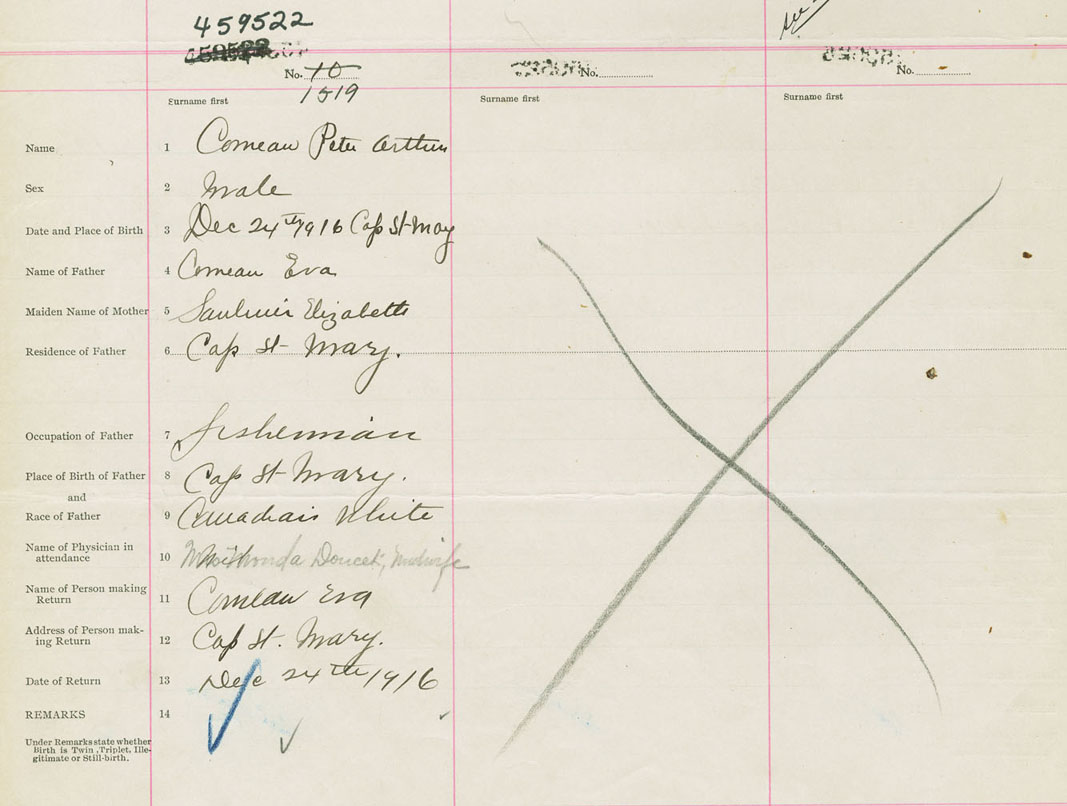 459522
No. 10
1519
No.
No.
Surname first
Surname first
Surname first
Name 1 Comeau Peter Arthur
Sex 2 Male
Date and Place of Birth 3 Dec 24th 1916 Cap St Mary
Name of Father 4 Comeau Eva
Maiden Name of Mother 5 Saulnier Elizabeth
Residence of Father 6 Cap St Mary.
Occupation of Father 7 Fisherman
Place of Birth of Father 8 Cap St Mary.
and
Race of Father 9 Canadian White
Name of Physician in
attendance 10 Doucet, Midwife
Name of Person making
Return 11 Comeau Eva
Address of Person mak-
ing Return 12 Cap St. Mary.
Date of Return 13 Dec 24th 1916
REMARKS 14
Under Remarks state whether
Birth is Twin, Triplet, Ille-
gitimate or Still-birth.